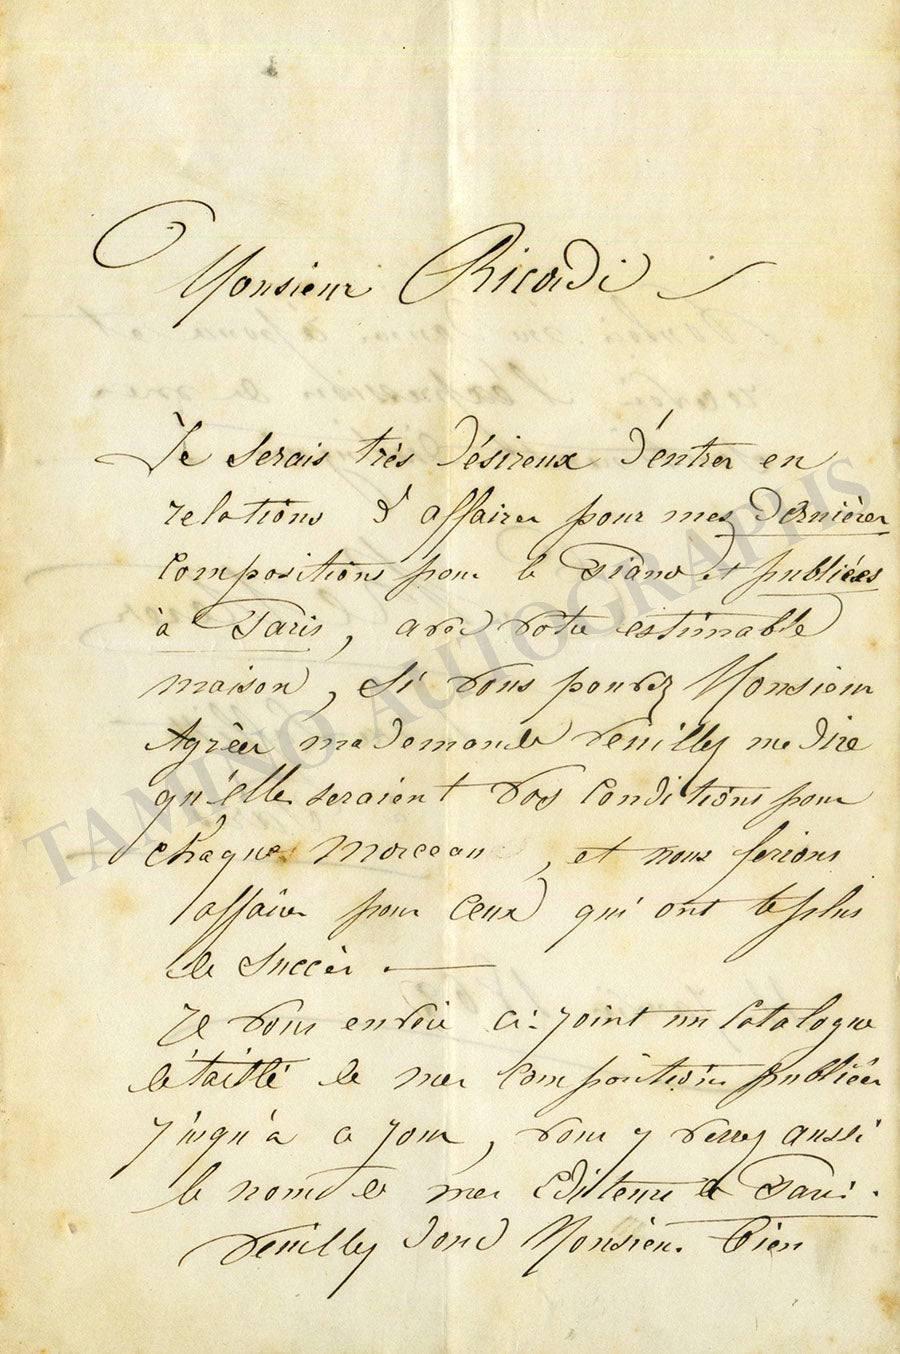 Monsieur Ricordi
Je serais très désireux d'entrer en
relations d'affaires pour mes dernières
compositions pour le Piano et publiées
à Paris, avec votre estimable
maison, si vous pouvez Monsieur
Agréer ma demande veuillez me dire
qu'elle seraient vos conditions pour
chaque morceau, et nous ferions
affaires pour ceux qui ont le plus
de succès.
Je vous envoie ci-joint un catalogue
détaillé de mes compositions publiées
j'usqu'à ce jour, vous y verrez aussi
le nom de mes Editeurs de Paris.
Veuillez donc Monsieur bien
TAMINO AUTOGRAPHS